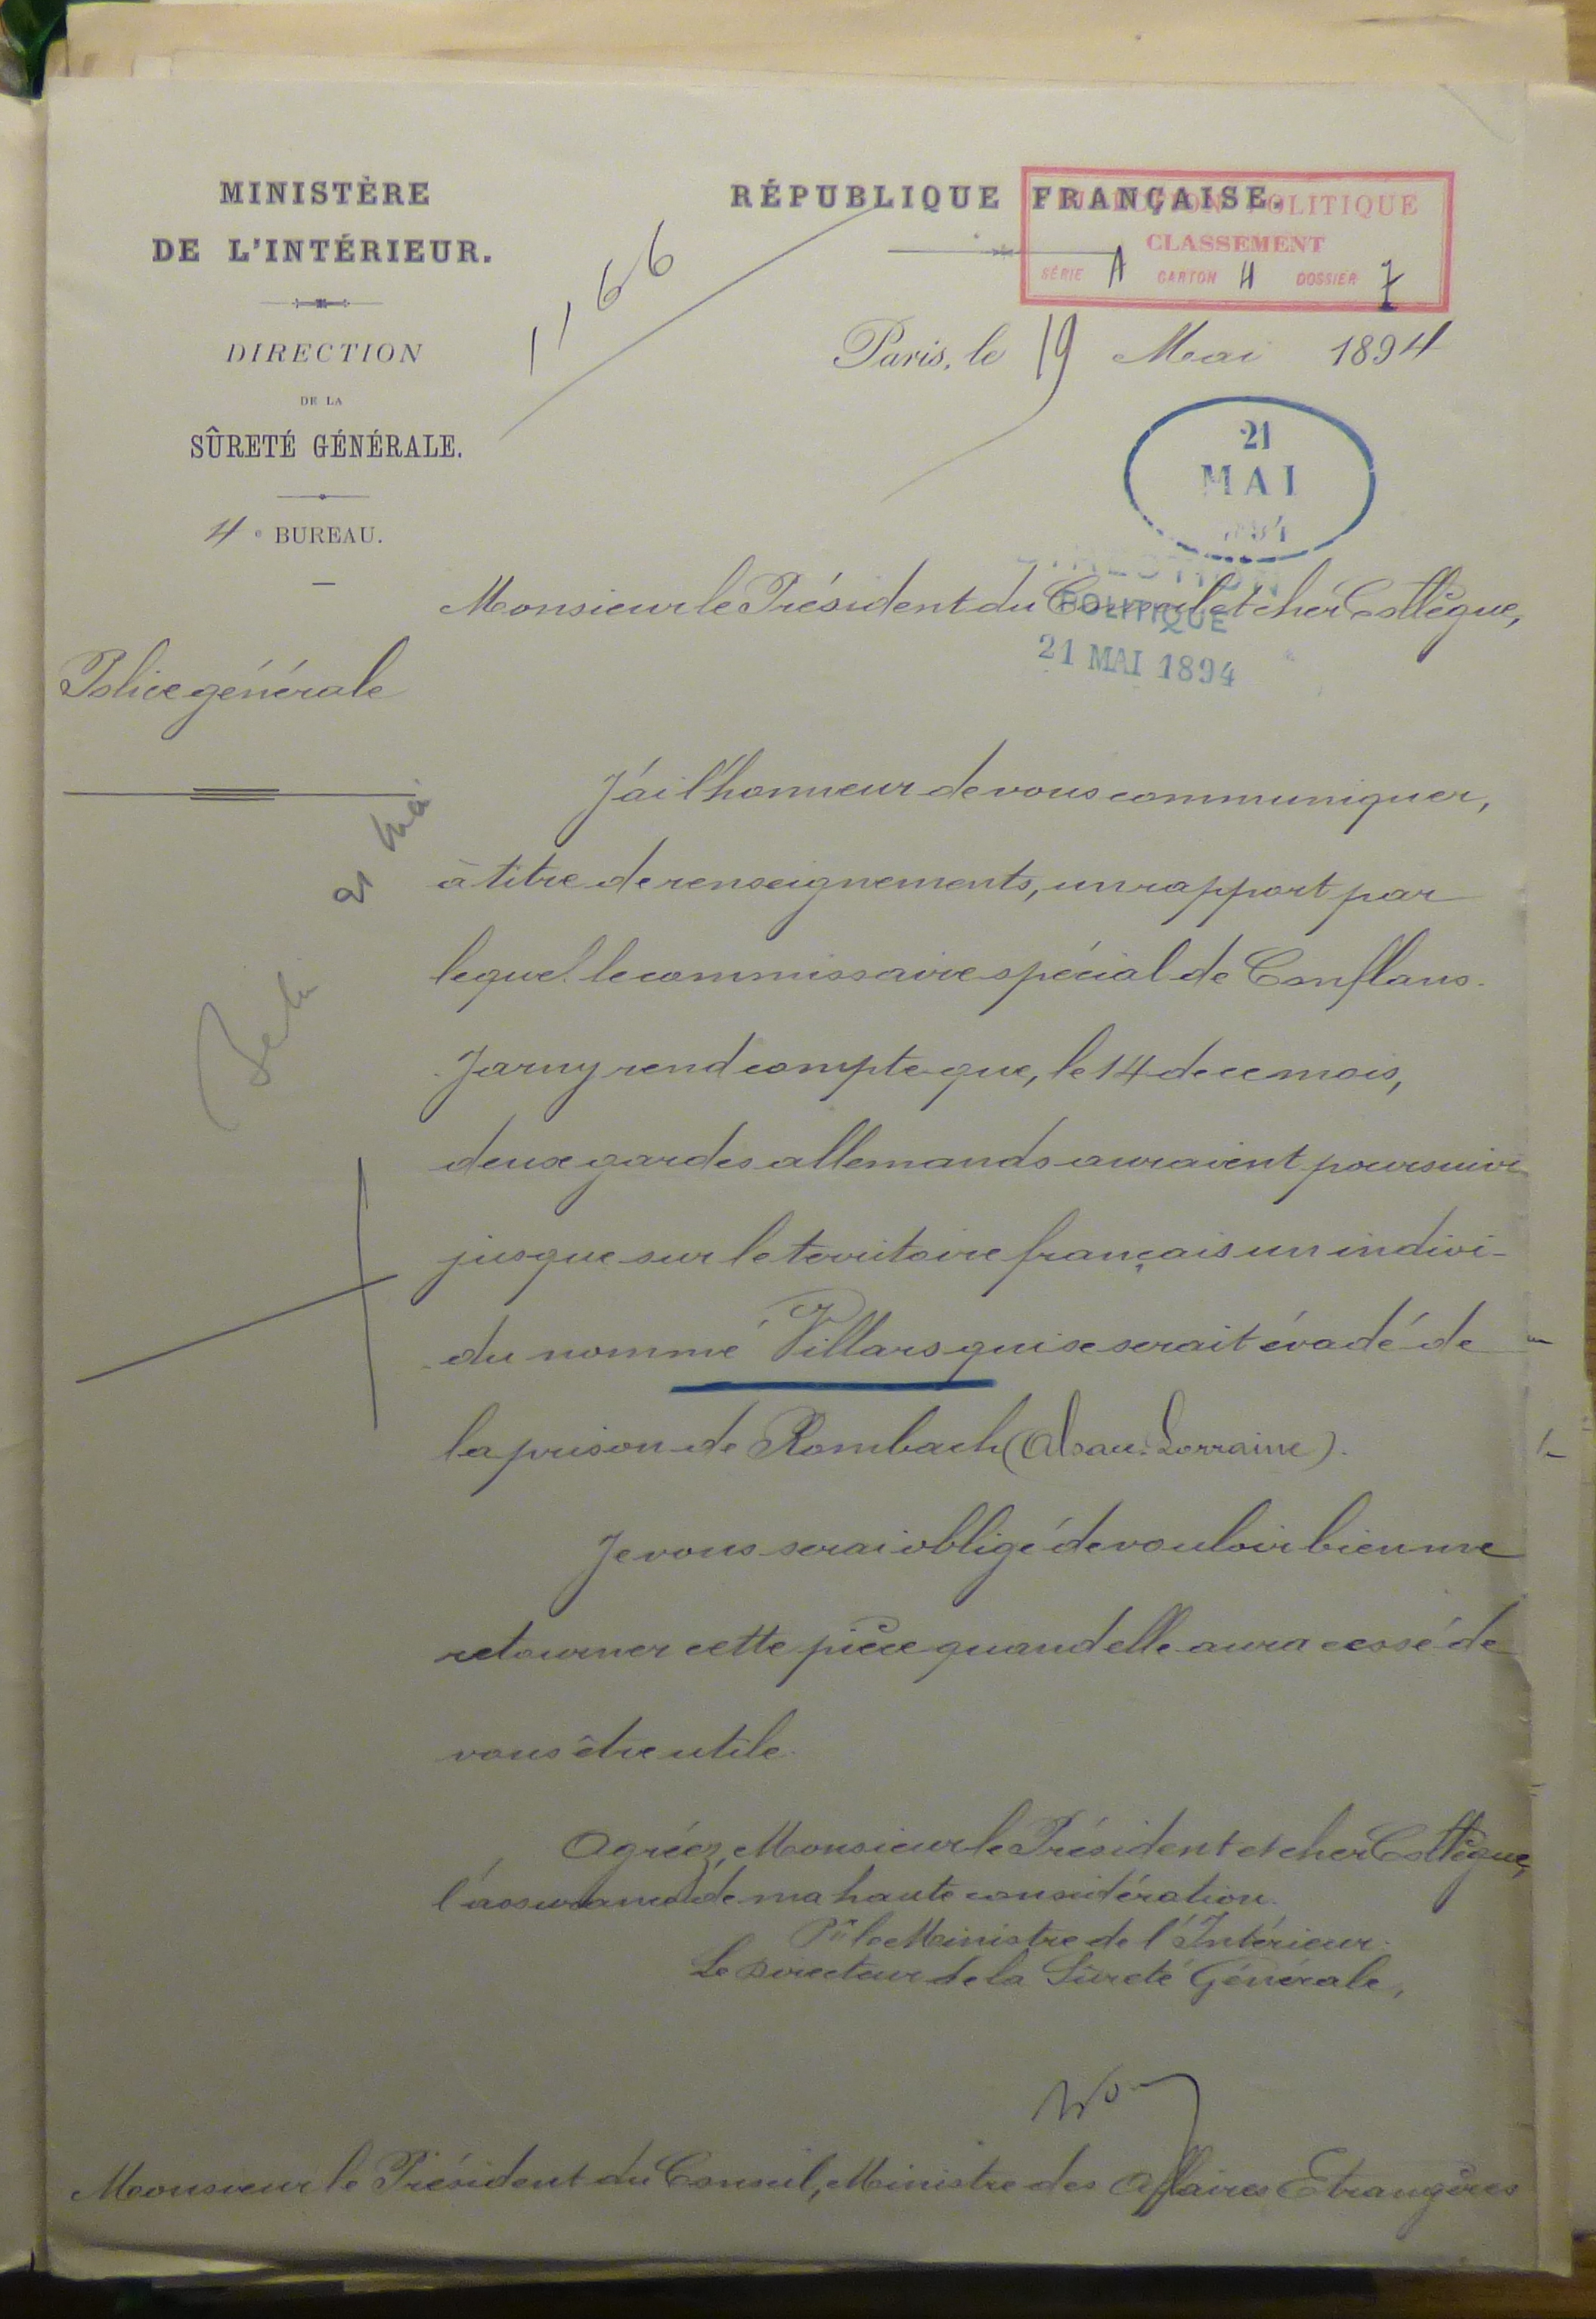 MINISTÈRE
DE L'INTÉRIEUR.
DIRECTION
DE LA
SÛRETÉ GÉNÉRALE.
4e BUREAU.
Police générale
1166
RÉPUBLIQUE FRANÇAISE.
DIRECTION POLITIQUE
CLASSEMENT
SÉRIE A CARTON 4 DOSSIER 7
Paris, le 19 Mai 1894
21
MAI
1894
Monsieur le Président du Conseil et cher Collègue,
DIRECTION
POLITIQUE
21 MAI 1894
J'ai l'honneur de vous communiquer,
à titre de renseignements, un rapport par
lequel le commissaire spécial de Conflans-
Jarny rend compte que, le 14 de ce mois,
deux gardes allemands auraient poursuivi
jusque sur le territoire français un indivi-
du nommé Villars qui se serait évadé de
la prison de Rombach (Alsace-Lorraine).
Je vous serai obligé de vouloir bien me
retourner cette pièce quand elle aura cessé de
vous être utile.
Agréez, Monsieur le Président et cher Collègue,
l'assurance de ma haute considération.
Pr le Ministre de l'Intérieur.
Le Directeur de la Sûreté Générale,
Monsieur le Président du Conseil, Ministre des Affaires Etrangères